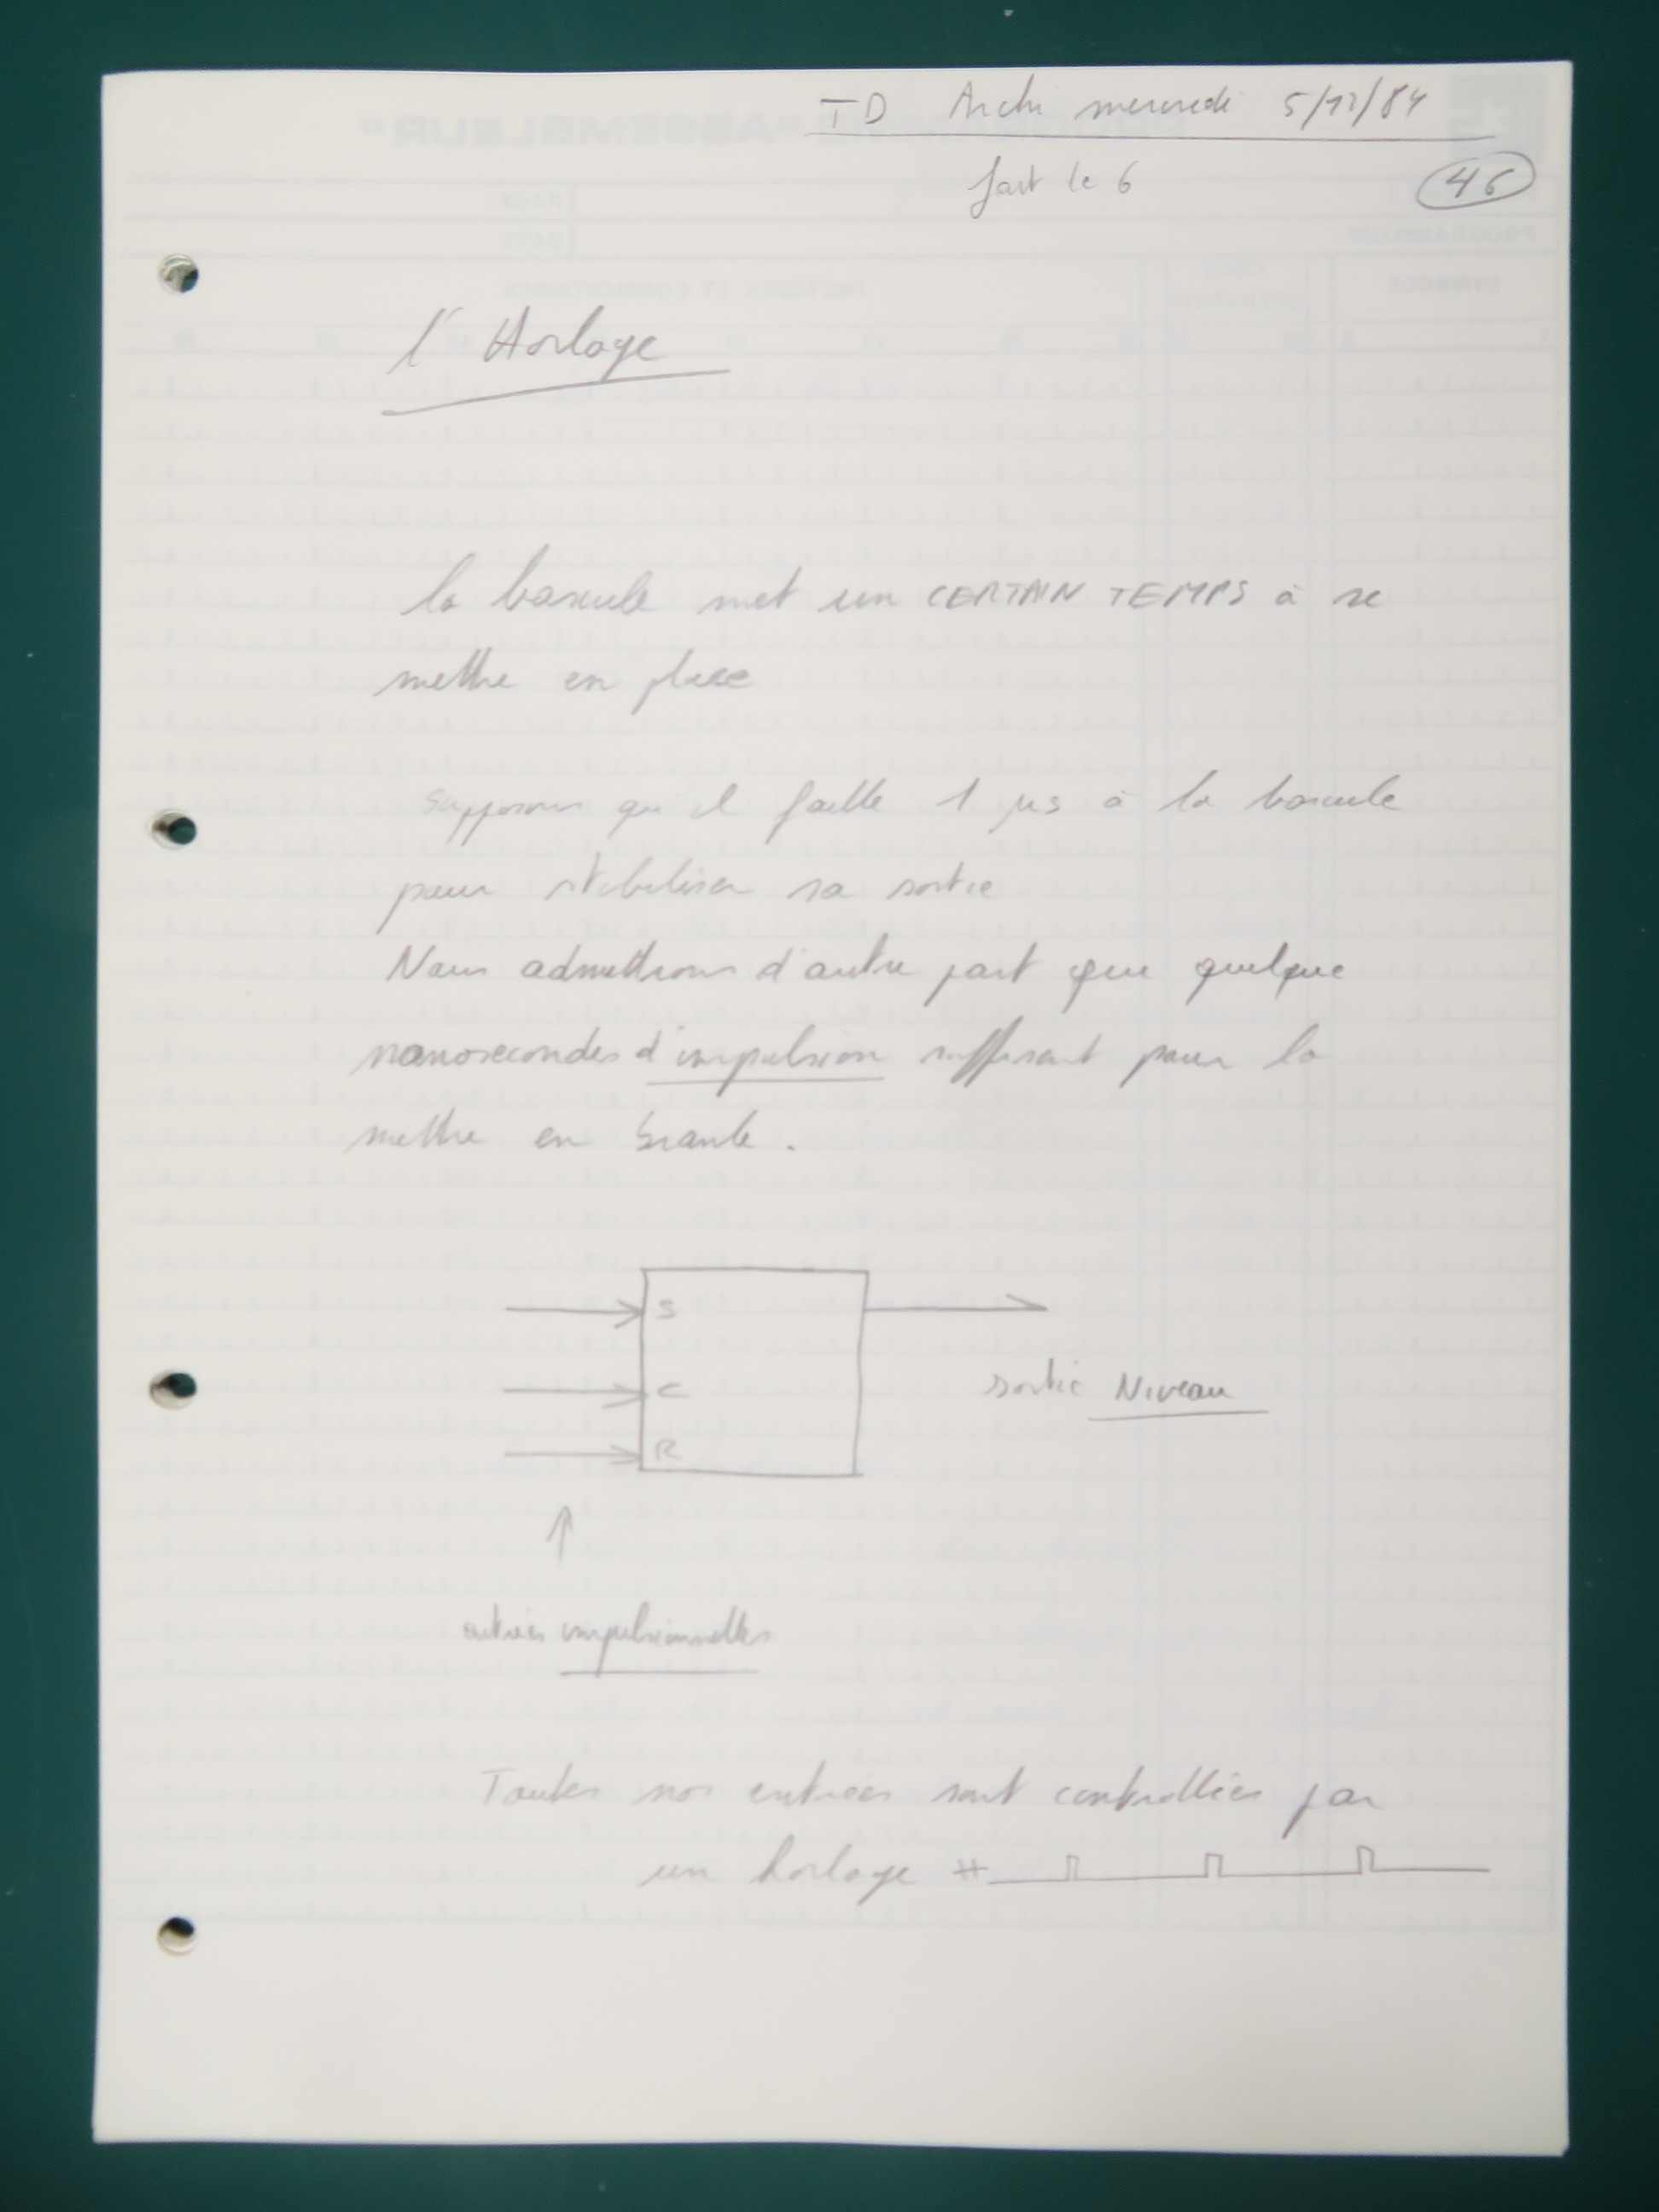 TD Archi mercredi 5/12/84
fait le 6
46
l'Horloge
la bascule met un CERTAIN TEMPS à se
mettre en place
supposons qu'il faille 1 µs à la bascule
pour stabiliser sa sortie
Nous admettrons d'autre part que quelque
nanosecondes d'impulsion suffisent pour la
mettre en branle.
S
C
R
sortie Niveau
entrées impulsionnelles
Toutes nos entrées sont controllées par
un horloge H